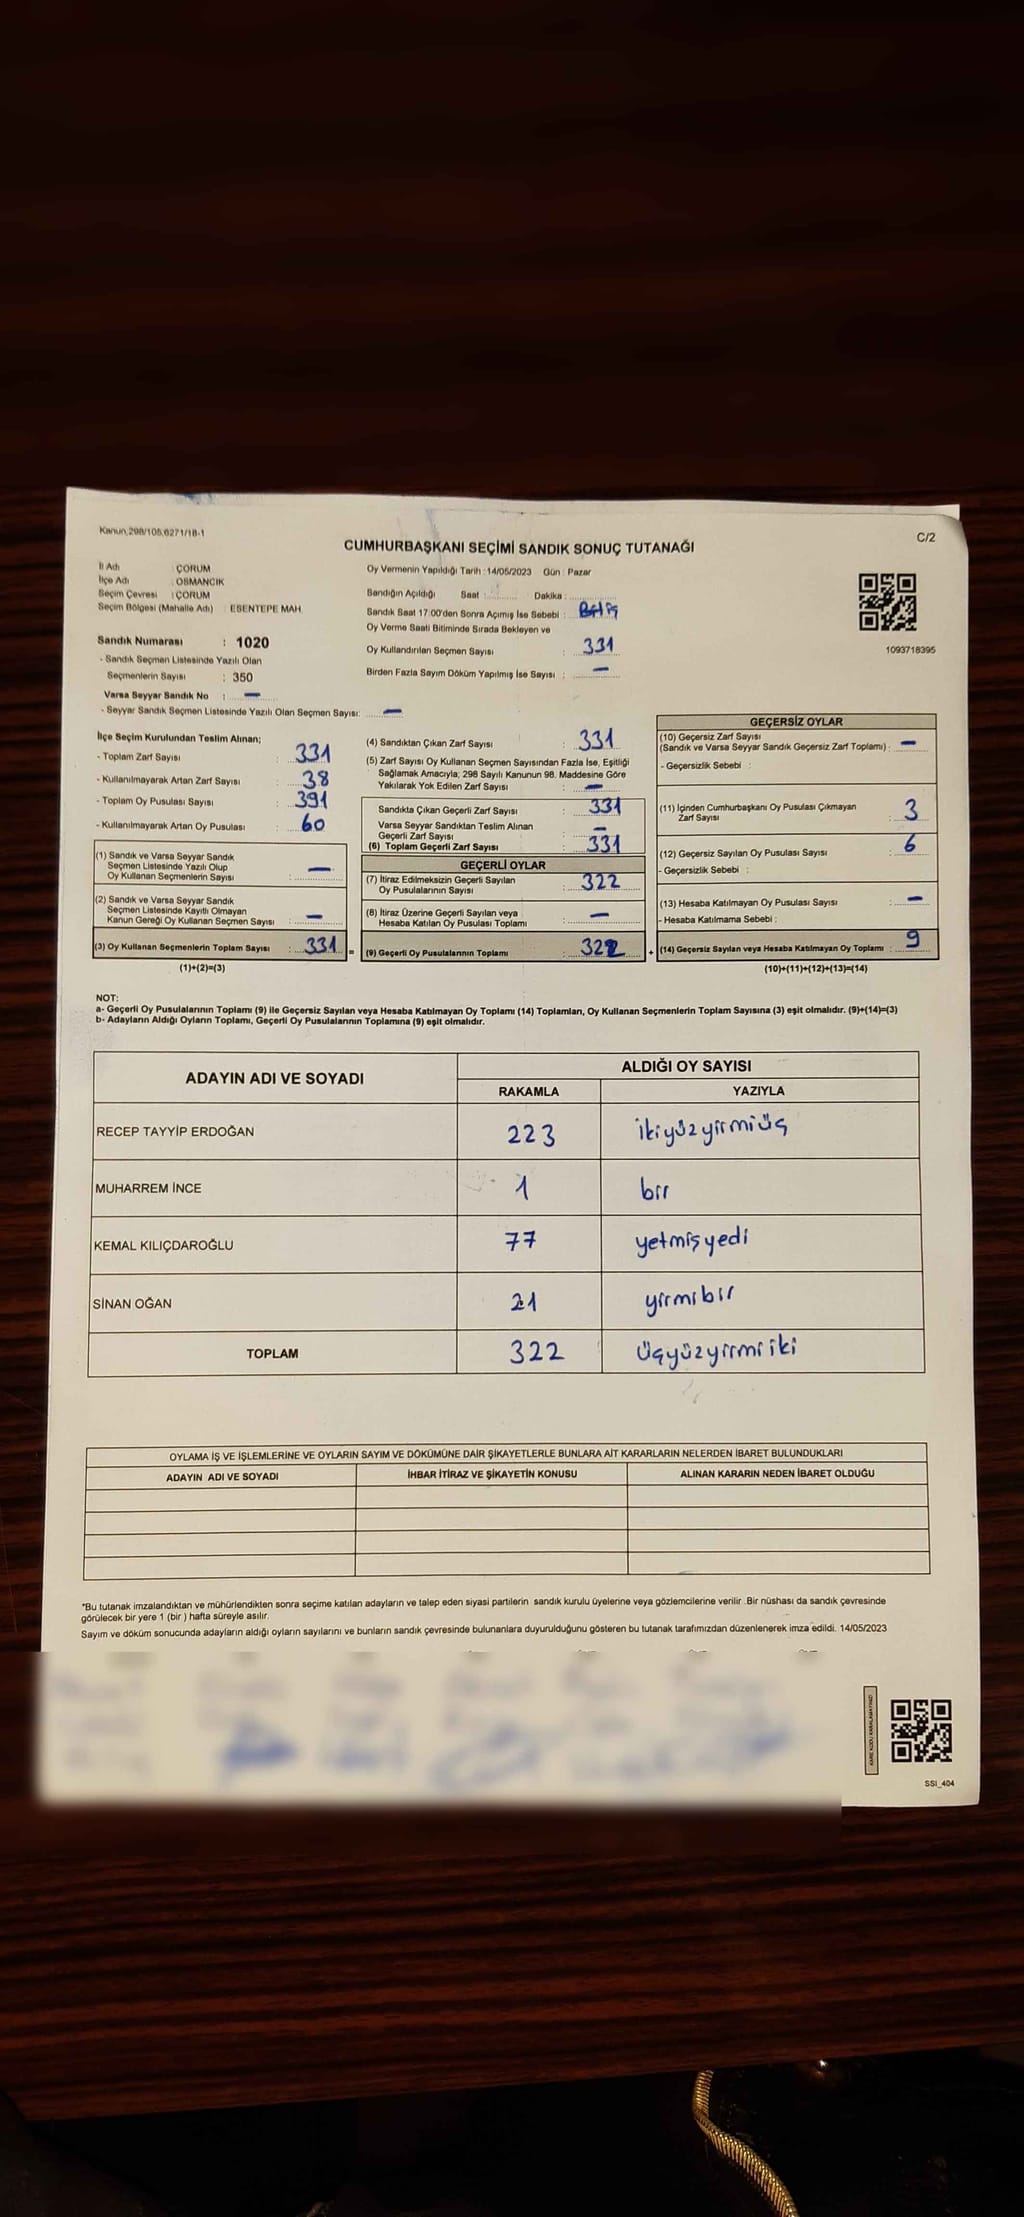 Kanun,298/105,6271/18-1
C/2
CUMHURBAŞKANI SEÇİMİ SANDIK SONUÇ TUTANAĞI
İl Adı : ÇORUM
İlçe Adı : OSMANCIK
Seçim Çevresi : ÇORUM
Seçim Bölgesi (Mahalle Adı) : ESENTEPE MAH.
Oy Vermenin Yapıldığı Tarih :14/05/2023 Gün : Pazar
Sandığın Açıldığı Saat : Dakika :
Sandık Saat 17:00'den Sonra Açımış İse Sebebi :
Oy Verme Saati Bitiminde Sırada Bekleyen ve
Oy Kullandırılan Seçmen Sayısı : 331
Birden Fazla Sayım Döküm Yapılmış İse Sayısı : —
1093718395
Sandık Numarası : 1020
- Sandık Seçmen Listesinde Yazılı Olan
Seçmenlerin Sayısı : 350
Varsa Seyyar Sandık No : —
- Seyyar Sandık Seçmen Listesinde Yazılı Olan Seçmen Sayısı: —
İlçe Seçim Kurulundan Teslim Alınan;
- Toplam Zarf Sayısı : 331
- Kullanılmayarak Artan Zarf Sayısı : 38
- Toplam Oy Pusulası Sayısı : 391
- Kullanılmayarak Artan Oy Pusulası : 60
(1) Sandık ve Varsa Seyyar Sandık
Seçmen Listesinde Yazılı Olup
Oy Kullanan Seçmenlerin Sayısı : —
(2) Sandık ve Varsa Seyyar Sandık
Seçmen Listesinde Kayıtlı Olmayan
Kanun Gereği Oy Kullanan Seçmen Sayısı : —
(3) Oy Kullanan Seçmenlerin Toplam Sayısı : 331
(1)+(2)=(3)
(4) Sandıktan Çıkan Zarf Sayısı : 331
(5) Zarf Sayısı Oy Kullanan Seçmen Sayısından Fazla İse, Eşitliği
Sağlamak Amacıyla; 298 Sayılı Kanunun 98. Maddesine Göre
Yakılarak Yok Edilen Zarf Sayısı : —
Sandıkta Çıkan Geçerli Zarf Sayısı : 331
Varsa Seyyar Sandıktan Teslim Alınan
Geçerli Zarf Sayısı : —
(6) Toplam Geçerli Zarf Sayısı : 331
GEÇERLİ OYLAR
(7) İtiraz Edilmeksizin Geçerli Sayılan
Oy Pusulalarının Sayısı : 322
(8) İtiraz Üzerine Geçerli Sayılan veya
Hesaba Katılan Oy Pusulası Toplamı : —
= (9) Geçerli Oy Pusulalarının Toplamı : 322
GEÇERSİZ OYLAR
(10) Geçersiz Zarf Sayısı
(Sandık ve Varsa Seyyar Sandık Geçersiz Zarf Toplamı) : —
- Geçersizlik Sebebi :
(11) İçinden Cumhurbaşkanı Oy Pusulası Çıkmayan
Zarf Sayısı : 3
(12) Geçersiz Sayılan Oy Pusulası Sayısı : 6
- Geçersizlik Sebebi :
(13) Hesaba Katılmayan Oy Pusulası Sayısı : —
- Hesaba Katılmama Sebebi :
+ (14) Geçersiz Sayılan veya Hesaba Katılmayan Oy Toplamı : 9
(10)+(11)+(12)+(13)=(14)
NOT:
a- Geçerli Oy Pusulalarının Toplamı (9) ile Geçersiz Sayılan veya Hesaba Katılmayan Oy Toplamı (14) Toplamları, Oy Kullanan Seçmenlerin Toplam Sayısına (3) eşit olmalıdır. (9)+(14)=(3)
b- Adayların Aldığı Oyların Toplamı, Geçerli Oy Pusulalarının Toplamına (9) eşit olmalıdır.
ADAYIN ADI VE SOYADI ALDIĞI OY SAYISI
RAKAMLA YAZIYLA
RECEP TAYYİP ERDOĞAN 223 ikiyüzyirmiüç
MUHARREM İNCE 1 bir
KEMAL KILIÇDAROĞLU 77 yetmişyedi
SİNAN OĞAN 21 yirmibir
TOPLAM 322 üçyüzyirmiiki
OYLAMA İŞ VE İŞLEMLERİNE VE OYLARIN SAYIM VE DÖKÜMÜNE DAİR ŞİKAYETLERLE BUNLARA AİT KARARLARIN NELERDEN İBARET BULUNDUKLARI
ADAYIN ADI VE SOYADI İHBAR İTİRAZ VE ŞİKAYETİN KONUSU ALINAN KARARIN NEDEN İBARET OLDUĞU
*Bu tutanak imzalandıktan ve mühürlendikten sonra seçime katılan adayların ve talep eden siyasi partilerin sandık kurulu üyelerine veya gözlemcilerine verilir .Bir nüshası da sandık çevresinde
görülecek bir yere 1 (bir ) hafta süreyle asılır.
Sayım ve döküm sonucunda adayların aldığı oyların sayılarını ve bunların sandık çevresinde bulunanlara duyurulduğunu gösteren bu tutanak tarafımızdan düzenlenerek imza edildi. 14/05/2023
KARE KODU KARALAMAYINIZ!
SSI_404